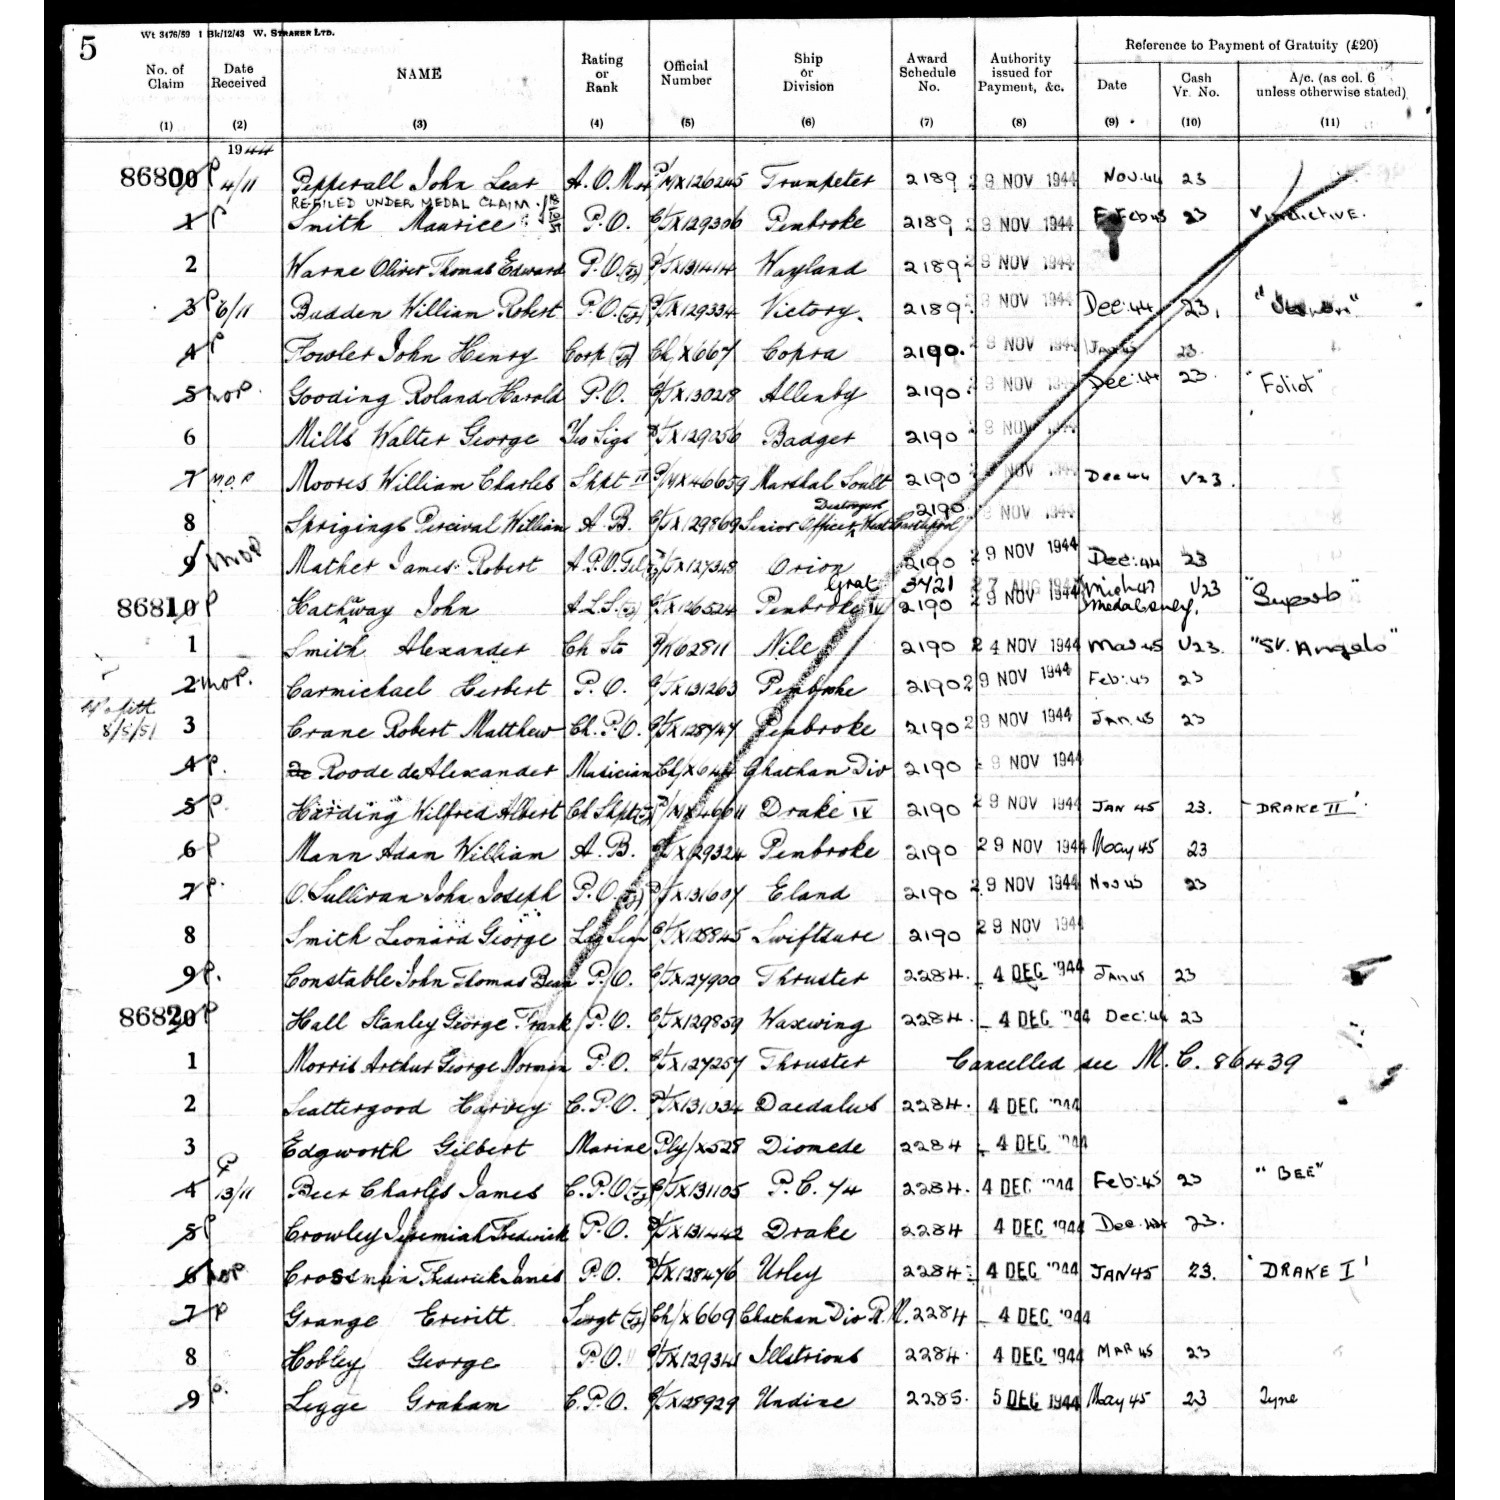 5
Wt 3476/59 1 Bk/12/43 W. STRAKER LTD.
Reference to Payment of Gratuity (£20)
No. of Claim Date Received NAME Rating or Rank Official Number Ship or Division Award Schedule No. Authority issued for Payment, &c. Date Cash Vr. No. A/c. (as col. 6 unless otherwise stated)
(1) (2) (3) (4) (5) (6) (7) (8) (9) (10) (11)
1944
86800 P 4/11 Pepperall John Lear A.O.M. P/MX126245 Trumpeter 2189 29 NOV 1944 Nov.44 23
RE-FILED UNDER MEDAL CLAIM.
1 P Smith Maurice P.O. C/JX129306 Pembroke 2189 29 NOV 1944 Feb 45 23 VINDICTIVE.
2 Warne Oliver Thomas Edward P.O. (Ty) P/JX131414 Wayland 2189 29 NOV 1944
3 P 6/11 Budden William Robert P.O. (Ty) P/JX129334 Victory. 2189 29 NOV 1944 Dec:44 23.
4 P Fowler John Henry Corp (Ty) Ch/X667 Copra 2190. 29 NOV 1944 Jan 45 23.
5 MOP. Gooding Roland Harold P.O. C/JX13028 Allenby 2190. 29 NOV 1944 Dec:44 23. "Foliot"
6 Mills Walter George Yeo Sigs P/JX129056 Badger 2190 29 NOV 1944
7 M.O.P Moores William Charles Shpt II P/MX46659 Marshal Soult 2190 29 NOV 1944 Dec 44 V23.
8 Sprigings Percival William A.B. C/JX129869 Senior Officer Destroyers West Hartlepool 2190 29 NOV 1944
9 MOP Mather James Robert A.P.O.Tel (Ty) P/JX127348 Orion 2190 29 NOV 1944 Dec:44 23
Grat 3421 27 AUG
86810 P Hathway John A.L.S. (Ty) P/JX126524 Pembroke IV 2190 29 NOV 1944 Medal only. V23 "Superb"
1 Smith Alexander Ch Sto P/K62811 Nile 2190 24 NOV 1944 Mar 45 V23. "St. Angelo"
2 MOP. Carmichael Herbert P.O. C/JX131263 Pembroke 2190 29 NOV 1944 Feb:45 23
8/5/51 3 Crane Robert Matthew Ch.P.O. C/JX128747 Pembroke 2190 29 NOV 1944 Jan.45 23
4 P. Roode de Alexander Musician Ch/X644 Chatham Div 2190 29 NOV 1944
5 P. Harding Wilfred Albert Ch Shpt (Ty) P/MX46611 Drake IV 2190 29 NOV 1944 JAN 45 23. DRAKE II
6 P Mann Adam William A.B. C/JX129324 Pembroke 2190 29 NOV 1944 May 45 23
7 P. O'Sullivan John Joseph P.O. (Ty) P/JX131607 Eland 2190 29 NOV 1944 Nov 45 23
8 Smith Leonard George Ldg Sean C/JX128845 Swiftsure 2190 29 NOV 1944
9 P. Constable John Thomas Bean P.O. C/JX127900 Thruster 2284. 4 DEC 1944 Jan 45 23
86820 P Hall Stanley George Frank P.O. C/JX129859 Waxwing 2284. 4 DEC 1944 Dec:44 23
1 Morris Arthur George Norman P.O. C/JX127257 Thruster Cancelled see M.C. 86439
2 Scattergood Harvey C.P.O. P/JX131034 Daedalus 2284. 4 DEC 1944
3 Edgworth Gilbert Marine Ply/X528 Diomede 2284 4 DEC 1944
4 P 13/11 Beer Charles James C.P.O (Ty) C/JX131105 P.C. 74 2284. 4 DEC 1944 Feb:45 23 "BEE"
5 P Crowley Jeremiah Frederick P.O. P/JX131442 Drake 2284 4 DEC 1944 Dec:44 23.
6 MOP Crossman Frederick James P.O. P/JX128476 Urley 2284 4 DEC 1944 JAN 45 23. 'DRAKE I'
7 P Grange Everitt Sergt (Ty) Ch/X669 Chatham Div R.M. 2284 4 DEC 1944
8 Hobley George P.O. C/JX129341 Illstrious 2284. 4 DEC 1944 MAR 45 23
9 P. Legge Graham C.P.O. C/JX128929 Undine 2285. 5 DEC 1944 May 45 23 Tyne